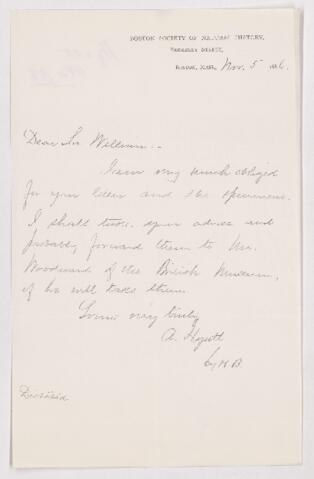 BOSTON SOCIETY OF NATURAL HISTORY,
BERKELEY STREET,
BOSTON, MASS., Nov. 5
Dear Sir William:-
I am very much obliged
for your letter and the specimens.
I shall take your advice and
probably forward them to Mr.
Woodward of the British Museum,
if he will take them.
Yours very truly
A. Hyatt
by
Dictated